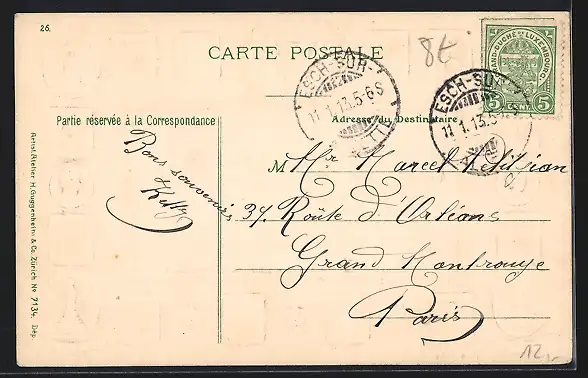 26.
CARTE POSTALE
8t
GRAND-DUCHÉ DE LUXEMBOURG
5 CENT. 5
ESCH-SUR-
11.1.13.5-6S
ESCH-SUR-
11.1.13.5
Partie réservée à la Correspondance
Adresse du Destinataire
Bons souvenirs
Ketty
M Mr Marcel Petitjean
34. Route d'Orléans
Grand Montrouge
Paris
Artist.Atelier H. Guggenheim & Co. Zürich No 7134. Dép.
12.-